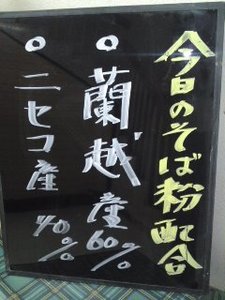 今日のそば粉配合
○蘭越産60%
○ニセコ産40%